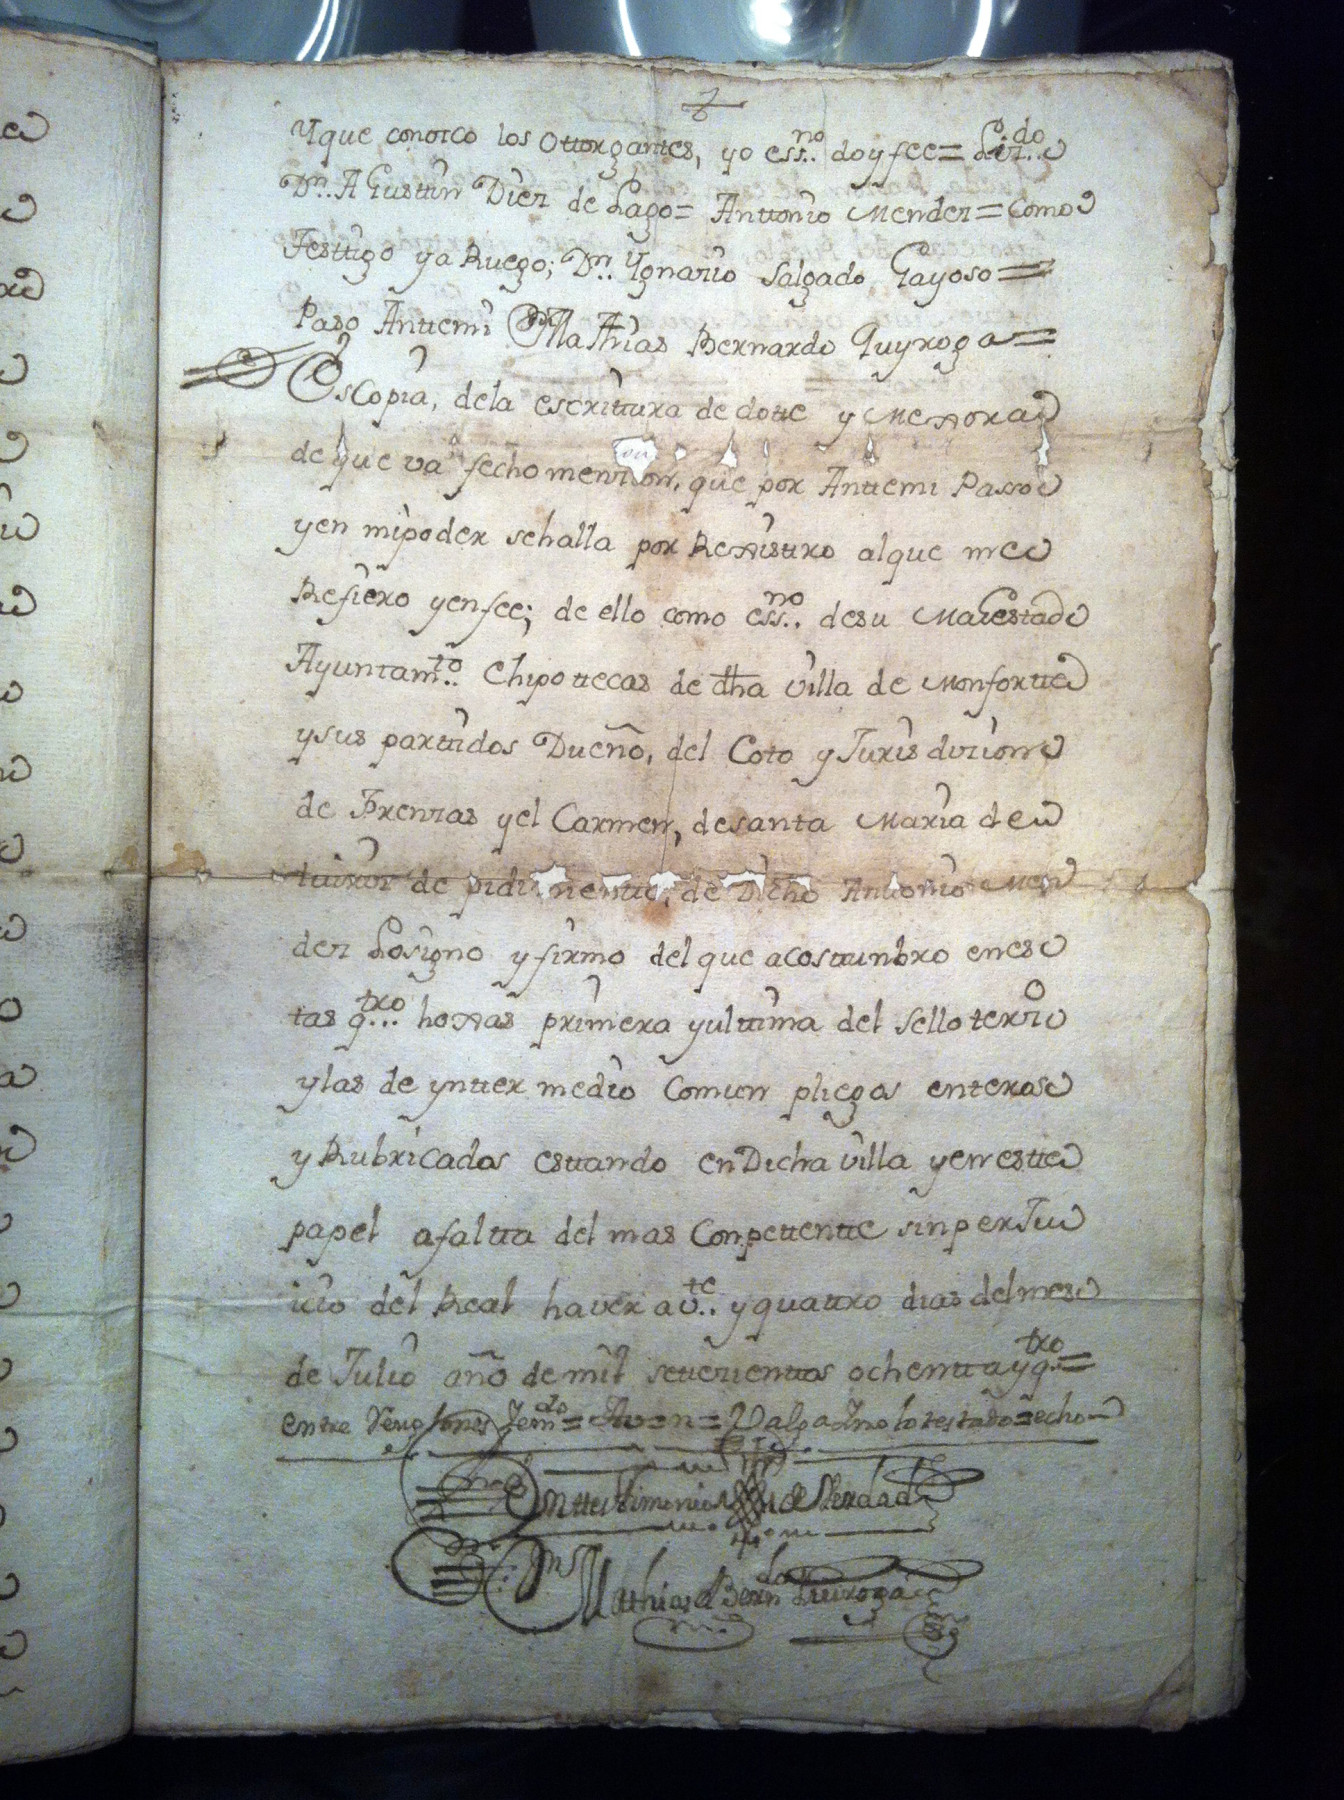 Y que conozco los Ottorgantes, yo essno.. doy fee= Lizdo..
Dn.. AGusttin Diez de Lago= Anttonio Mendez= Como
Testtigo y a Ruego; Dn.. Ygnazio Salgado Gayoso=
Paso Anttemi Mathias Bernardo Quyroga=
EsCopia, dela escrittura de dotte y MeJora
de que va fecho menzion, que por Anttemi Passo
y en mi poder se halla por ReJisttro al que me
Refiero y en fee; de ello como essno.. desu Magestad
Ayuntamto.. e hipottecas de dha villa de Monfortte
y sus parttidos Dueño, del Coto y Jurisdizion
de Frenzas y el Carmen, de santa Maria de
de pidimentto, de Dicho Anttonio Men
dez Lo signo y firmo del que acosttunbro en es
tas qtro... hoJas primera y ulttima del Sello terzo
y las de yntter medio Comun pliegos enteros
y Rubricados esttando en Dicha villa y en estte
papel a faltta del mas Conpettentte sin perJui
icio del Real haver a vte.. y quattro dias del mes
de Julio año de mil settezienttos ochentta y qtro.=
entre Renglones = = n = Valga Yno lo testado= echo
En ttesttimonio de Verdad
Mathias Berndo Quiroga